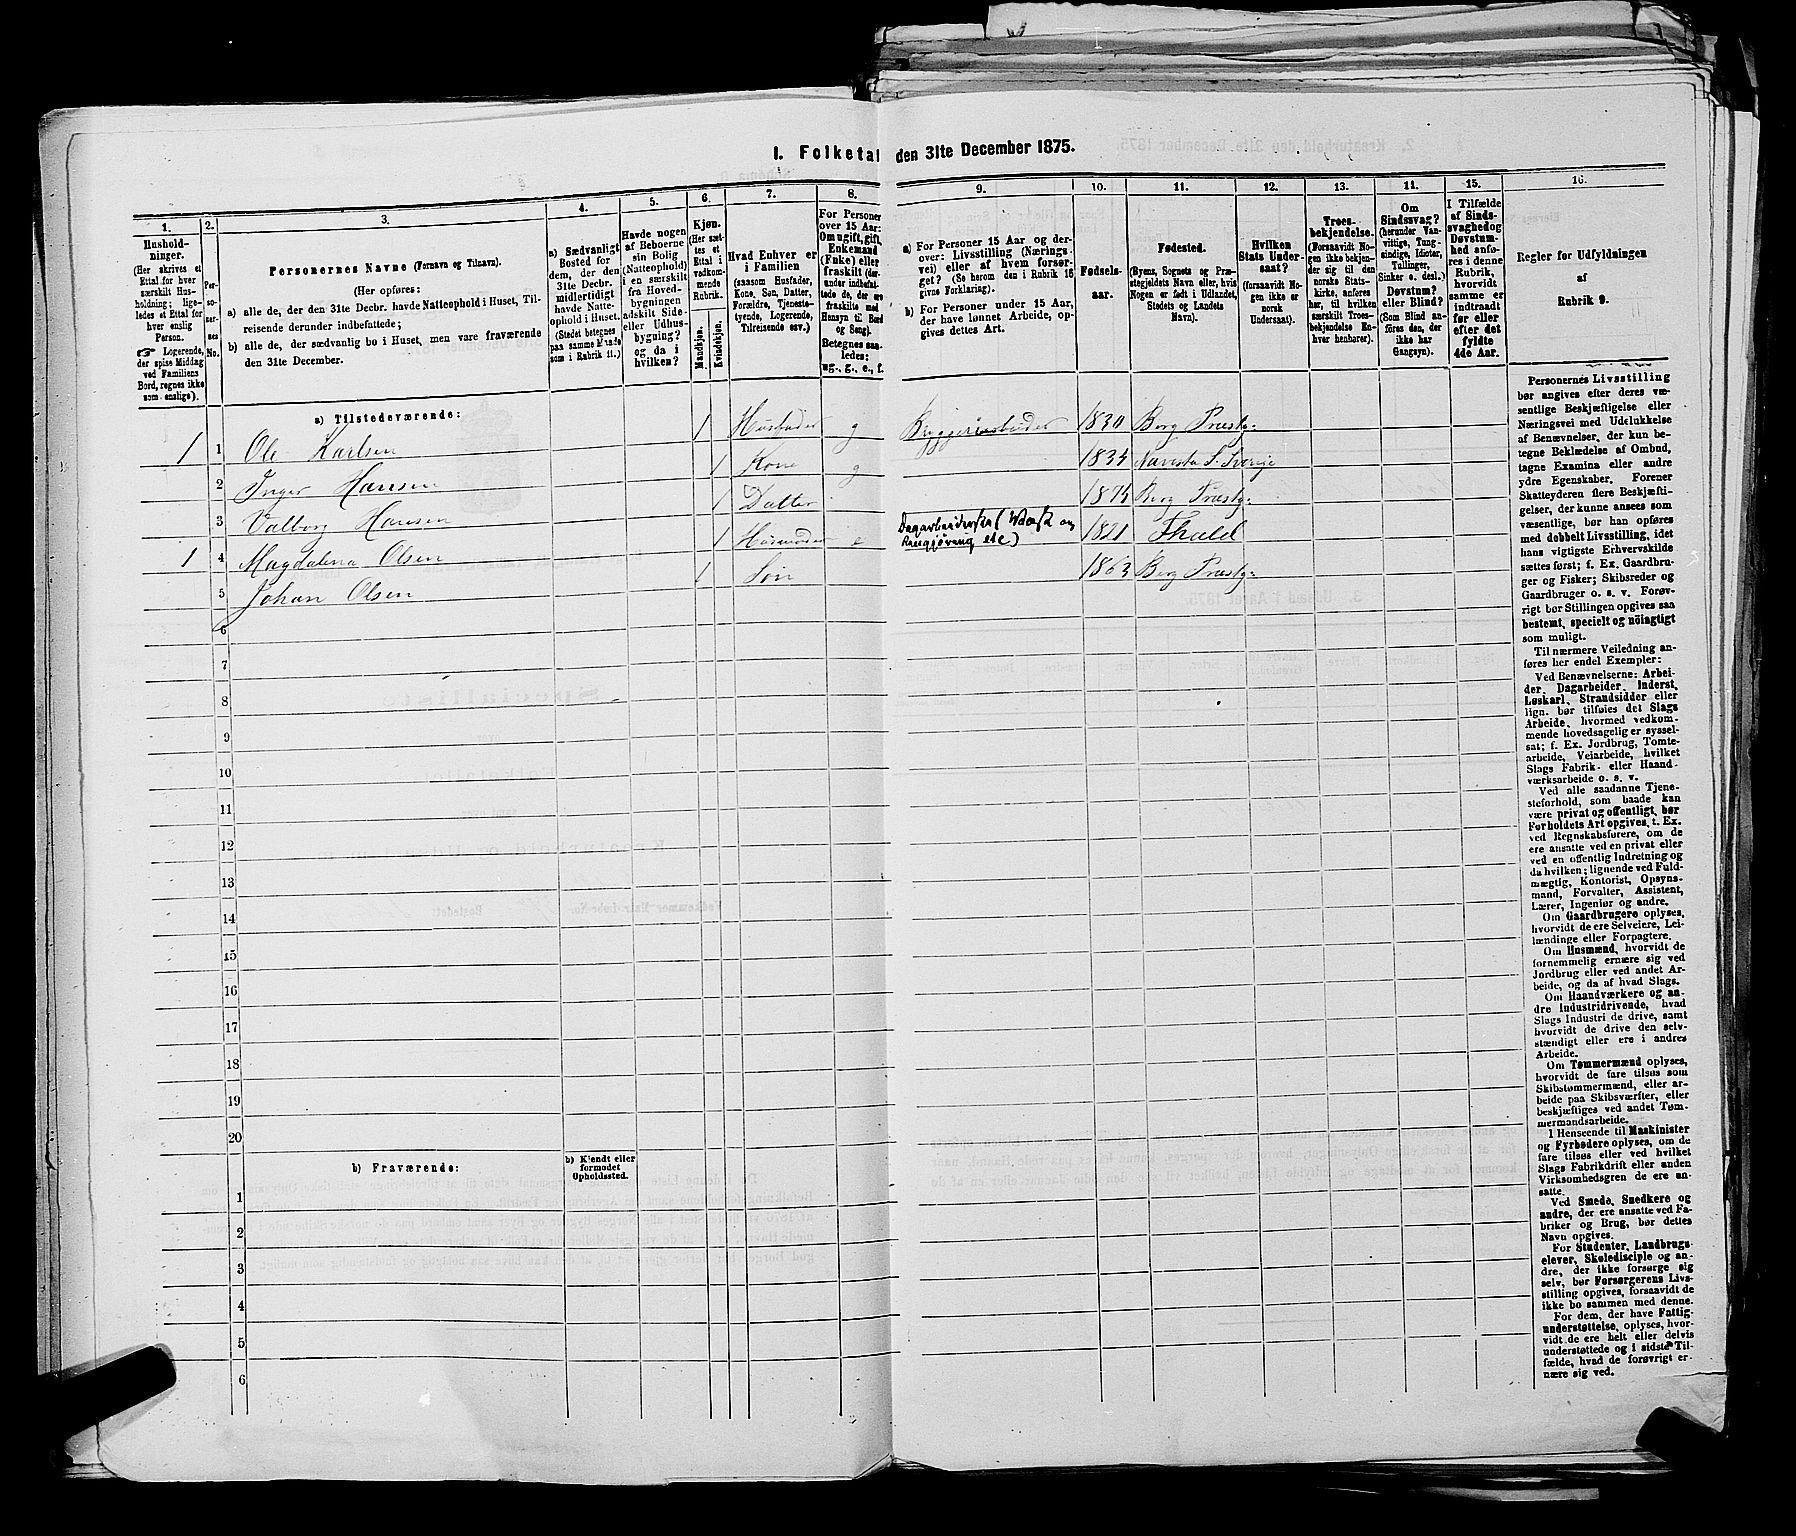 I. Folketal den 31te December 1875.
1.
2.
3.
4.
5.
6.
7.
8.
9.
10.
11.
12.
13.
14.
15.
16.
Hushold-
ninger.
(Her skrives et
Ettal for hver
særskilt Hus-
holdning; lige-
ledes et Ettal for
hver enslig
Person.
☞ Logerende,
der spise Middag
ved Familiens
Bord, regnes ikke
som enslige).
Per-
so-
ner-
nes
No.
Personernes Navne (Fornavn og Tilnavn).
(Her opføres:
a) alle de, der den 31te Decbr. havde Natteophold i Huset, Til-
reisende derunder indbefattede;
b) alle de, der sædvanlig bo i Huset, men vare fraværende
den 31te December.
a) Sædvanligt
Bosted for
dem, der den
31te Decbr.
midlertidigt
havde Natte-
ophold i Huset.
(Stedet betegnes
paa samme Maade
som i Rubrik 11.)
Havde nogen
af Beboerne
sin Bolig
(Natteophold)
i en særskilt
fra Hoved-
bygningen
adskilt Side-
eller Udhus-
bygning?
og da i
hvilken?
Kjøn.
(Her sæt-
tes et
Ettal i
vedkom-
mende
Rubrik.
Mandkjøn.
Kvindekjøn.
Hvad Enhver er
i Familien
(saasom Husfader,
Kone, Søn, Datter,
Forældre, Tjeneste-
tyende, Logerende,
Tilreisende osv.)
For Personer
over 15 Aar:
Om ugift, gift,
Enkemand
(Enke) eller
fraskilt (der-
under indbefat-
tede de, der ere
fraskilte med
Hensyn til Bord
og Seng).
Betegnes saa-
ledes:
ug., g., e., f.
a) For Personer 15 Aar og der-
over: Livsstilling (Nærings-
vei) eller af hvem forsør-
get? (Se herom den i Rubrik 16
givne Forklaring).
b) For Personer under 15 Aar,
der have lønnet Arbeide, op-
gives dettes Art.
Fødsels-
aar.
Fødested.
(Byens, Sognets og Præ-
stegjeldets Navn eller, hvis
Nogen er født i Udlandet,
Stedets og Landets
Navn).
Hvilken
Stats Under-
saat?
(forsaavidt No-
gen ikke er
norsk
Undersaat).
Troes-
bekjendelse.
(Forsaavidt No-
gen ikke bekjen-
der sig til den
norske Stats-
kirke, anføres
her, til hvilken
særskilt Troes-
bekjendelse En-
hver henhører).
Om
Sindssvag?
(herunder Van-
vittige, Tung-
sindige, Idioter,
Tullinger,
Sinker o. desl.)
Døvstum?
eller Blind?
(Som Blind an-
føres den, der
ikke har
Gangsyn).
I Tilfælde
af Sinds-
svaghed og
Døvstum-
hed anfø-
res i denne
Rubrik,
hvorvidt
samme er
indtraadt
før eller
efter det
fyldte
4de Aar.
Regler for Udfyldningen
af
Rubrik 9.
a) Tilstedeværende:
1 1 Ole Karlsen 1 Husfader g Bryggeriarbeider 1830 Berg Præstg:
2 Inger Hansen 1 Kone g 1834 Sverige
3 Valborg Hansen 1 Datter 1875 Berg Præstg:
1 4 Magdalena Olsen 1 Husmoder e Dagarbeiderske (Vask og
Rengjøreng etc) 1821 Fhald
5 Johan Olsen 1 Søn 1863 Berg Præstg:
6
7
8
9
10
11
12
13
14
15
16
17
18
19
20
b) Fraværende:
b) Kjendt eller
formodet
Opholdssted.
1
2
3
4
5
6
Personernes Livsstilling
bør angives efter deres væ-
sentlige Beskjæftigelse eller
Næringsvei med Udelukkelse
af Benævnelser, der kun be-
tegne Beklædelse af Ombud,
tagne Examina eller andre
ydre Egenskaber. Forener
Skatteyderen flere Beskjæfti-
gelser, der kunne ansees som
væsentlige, bør han opføres
med dobbelt Livsstilling, idet
hans vigtigste Erhvervskilde
sættes først; f. Ex. Gaardbru-
ger og Fisker; Skibsreder og
Gaardbruger o. s. v. Forøv-
rigt bør Stillingen opgives saa
bestemt, specielt og nöiagtigt
som muligt.
Til nærmere Veiledning an-
føres her endel Exempler:
Ved Benævnelserne: Arbei-
der, Dagarbeider, Inderst,
Løskarl, Strandsidder eller
lign. bør tilføies det Slags
Arbeide, hvormed vedkom-
mende hovedsagelig er syssel-
sat; f. Ex. Jordbrug, Tomte-
arbeide, Veiarbeide, hvilket
Slags Fabrik- eller Haand-
værksarbeide o. s. v.
Ved alle saadanne Tjene-
steforhold, som baade kan
være privat og offentligt, bør
Forholdets Art opgives, t. Ex.
ved Regnskabsførere, om de
ere ansatte ved en privat eller
ved en offentlig Indretning og
da hvilken; lignende ved Fuld-
mægtig, Kontorist, Opsyns-
mand, Forvalter, Assistent,
Lærer, Ingeniør og andre.
Om Gaardbrugere oplyses,
hvorvidt de ere Selveiere, Lei-
lændinge eller Forpagtere.
Om Husmænd, hvorvidt de
fornemmelig ernære sig ved
Jordbrug eller ved andet Ar-
beide, og da af hvad Slags.
Om Haandværkere og an-
dre Industridrivende, hvad
Slags Industri de drive, samt
hvorvidt de drive den selv-
stændigt eller ere i andres
Arbeide.
Om Tømmermænd oplyses,
hvorvidt de fare tilsøs som
Skibstømmermænd, eller ar-
beide paa Skibsværfter, eller
beskjæftiges ved andet Tøm-
mermandsarbeide.
I Henseende til Maskinister
og Fyrbødere oplyses, om de
fare tilsøs eller ved hvilket
Slags Fabrikdrift eller anden
Virksomhedsgren de ere an-
satte.
Ved Smede, Snedkere og
andre, der ere ansatte ved Fa-
briker og Brug, bør dettes
Navn opgives.
For Studenter, Landbrugs-
elever, Skoledisciple og an-
dre, der ikke forsørge sig
selv, bør Forsørgerens Livs-
stilling opgives, forsaavidt de
ikke bo sammen med denne.
For dem, der have Fattig-
understøttelse, oplyses, hvor-
vidt de ere helt eller delvis
understøttede og i sidste Til-
fælde, hvad de forøvrigt er-
nære sig ved.